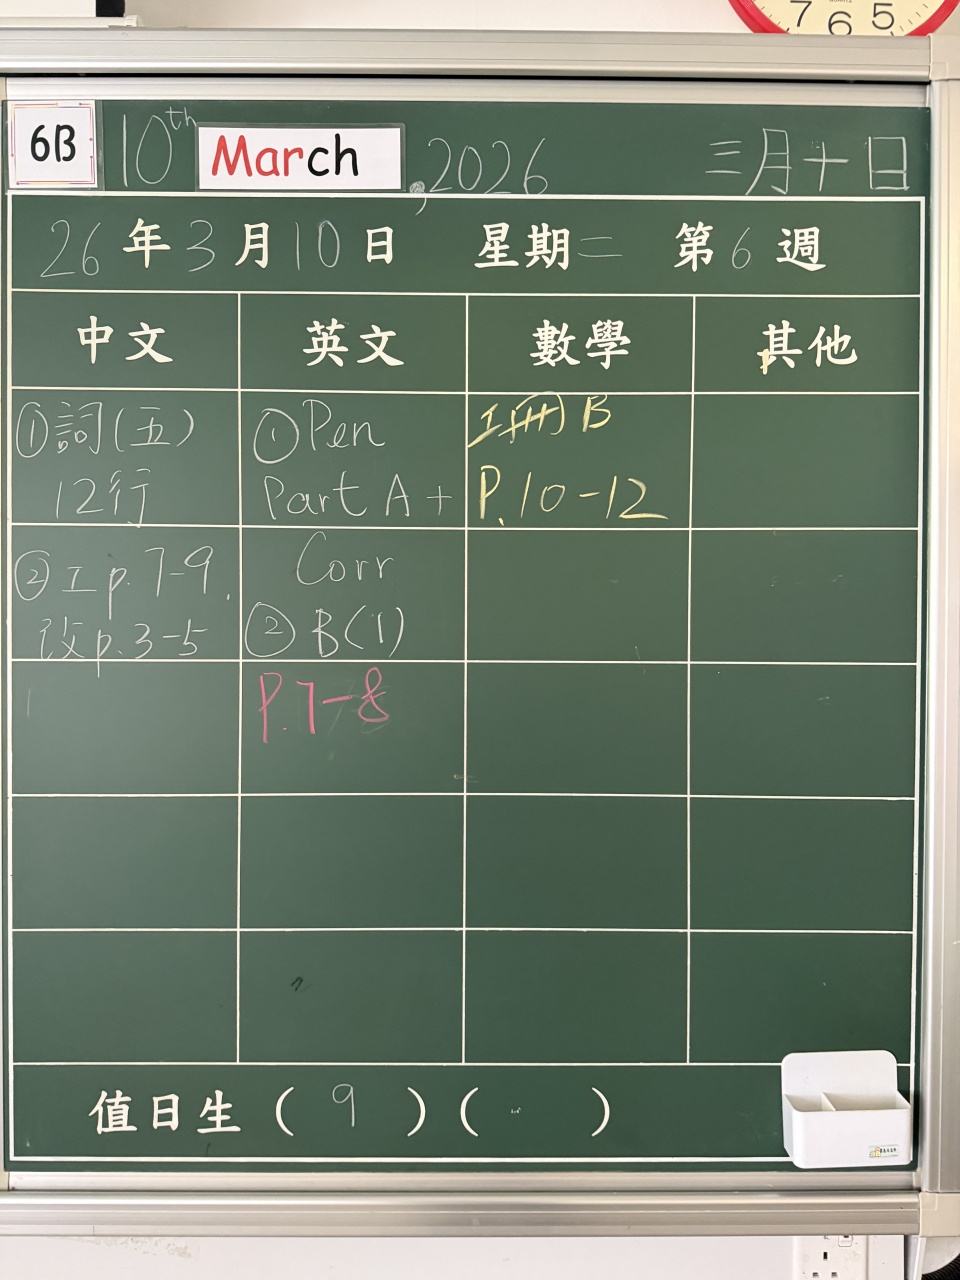 7 6 5
6B 10th March, 2026 三月十日
26年3月10日 星期二 第6週
中文 英文 數學 其他
①詞(五)
12行
②工p.7-9.
改p.3-5
①Pen
Part A+
Corr
②B(1)
P.7-8
工冊B
P.10-12
值日生(9)( )